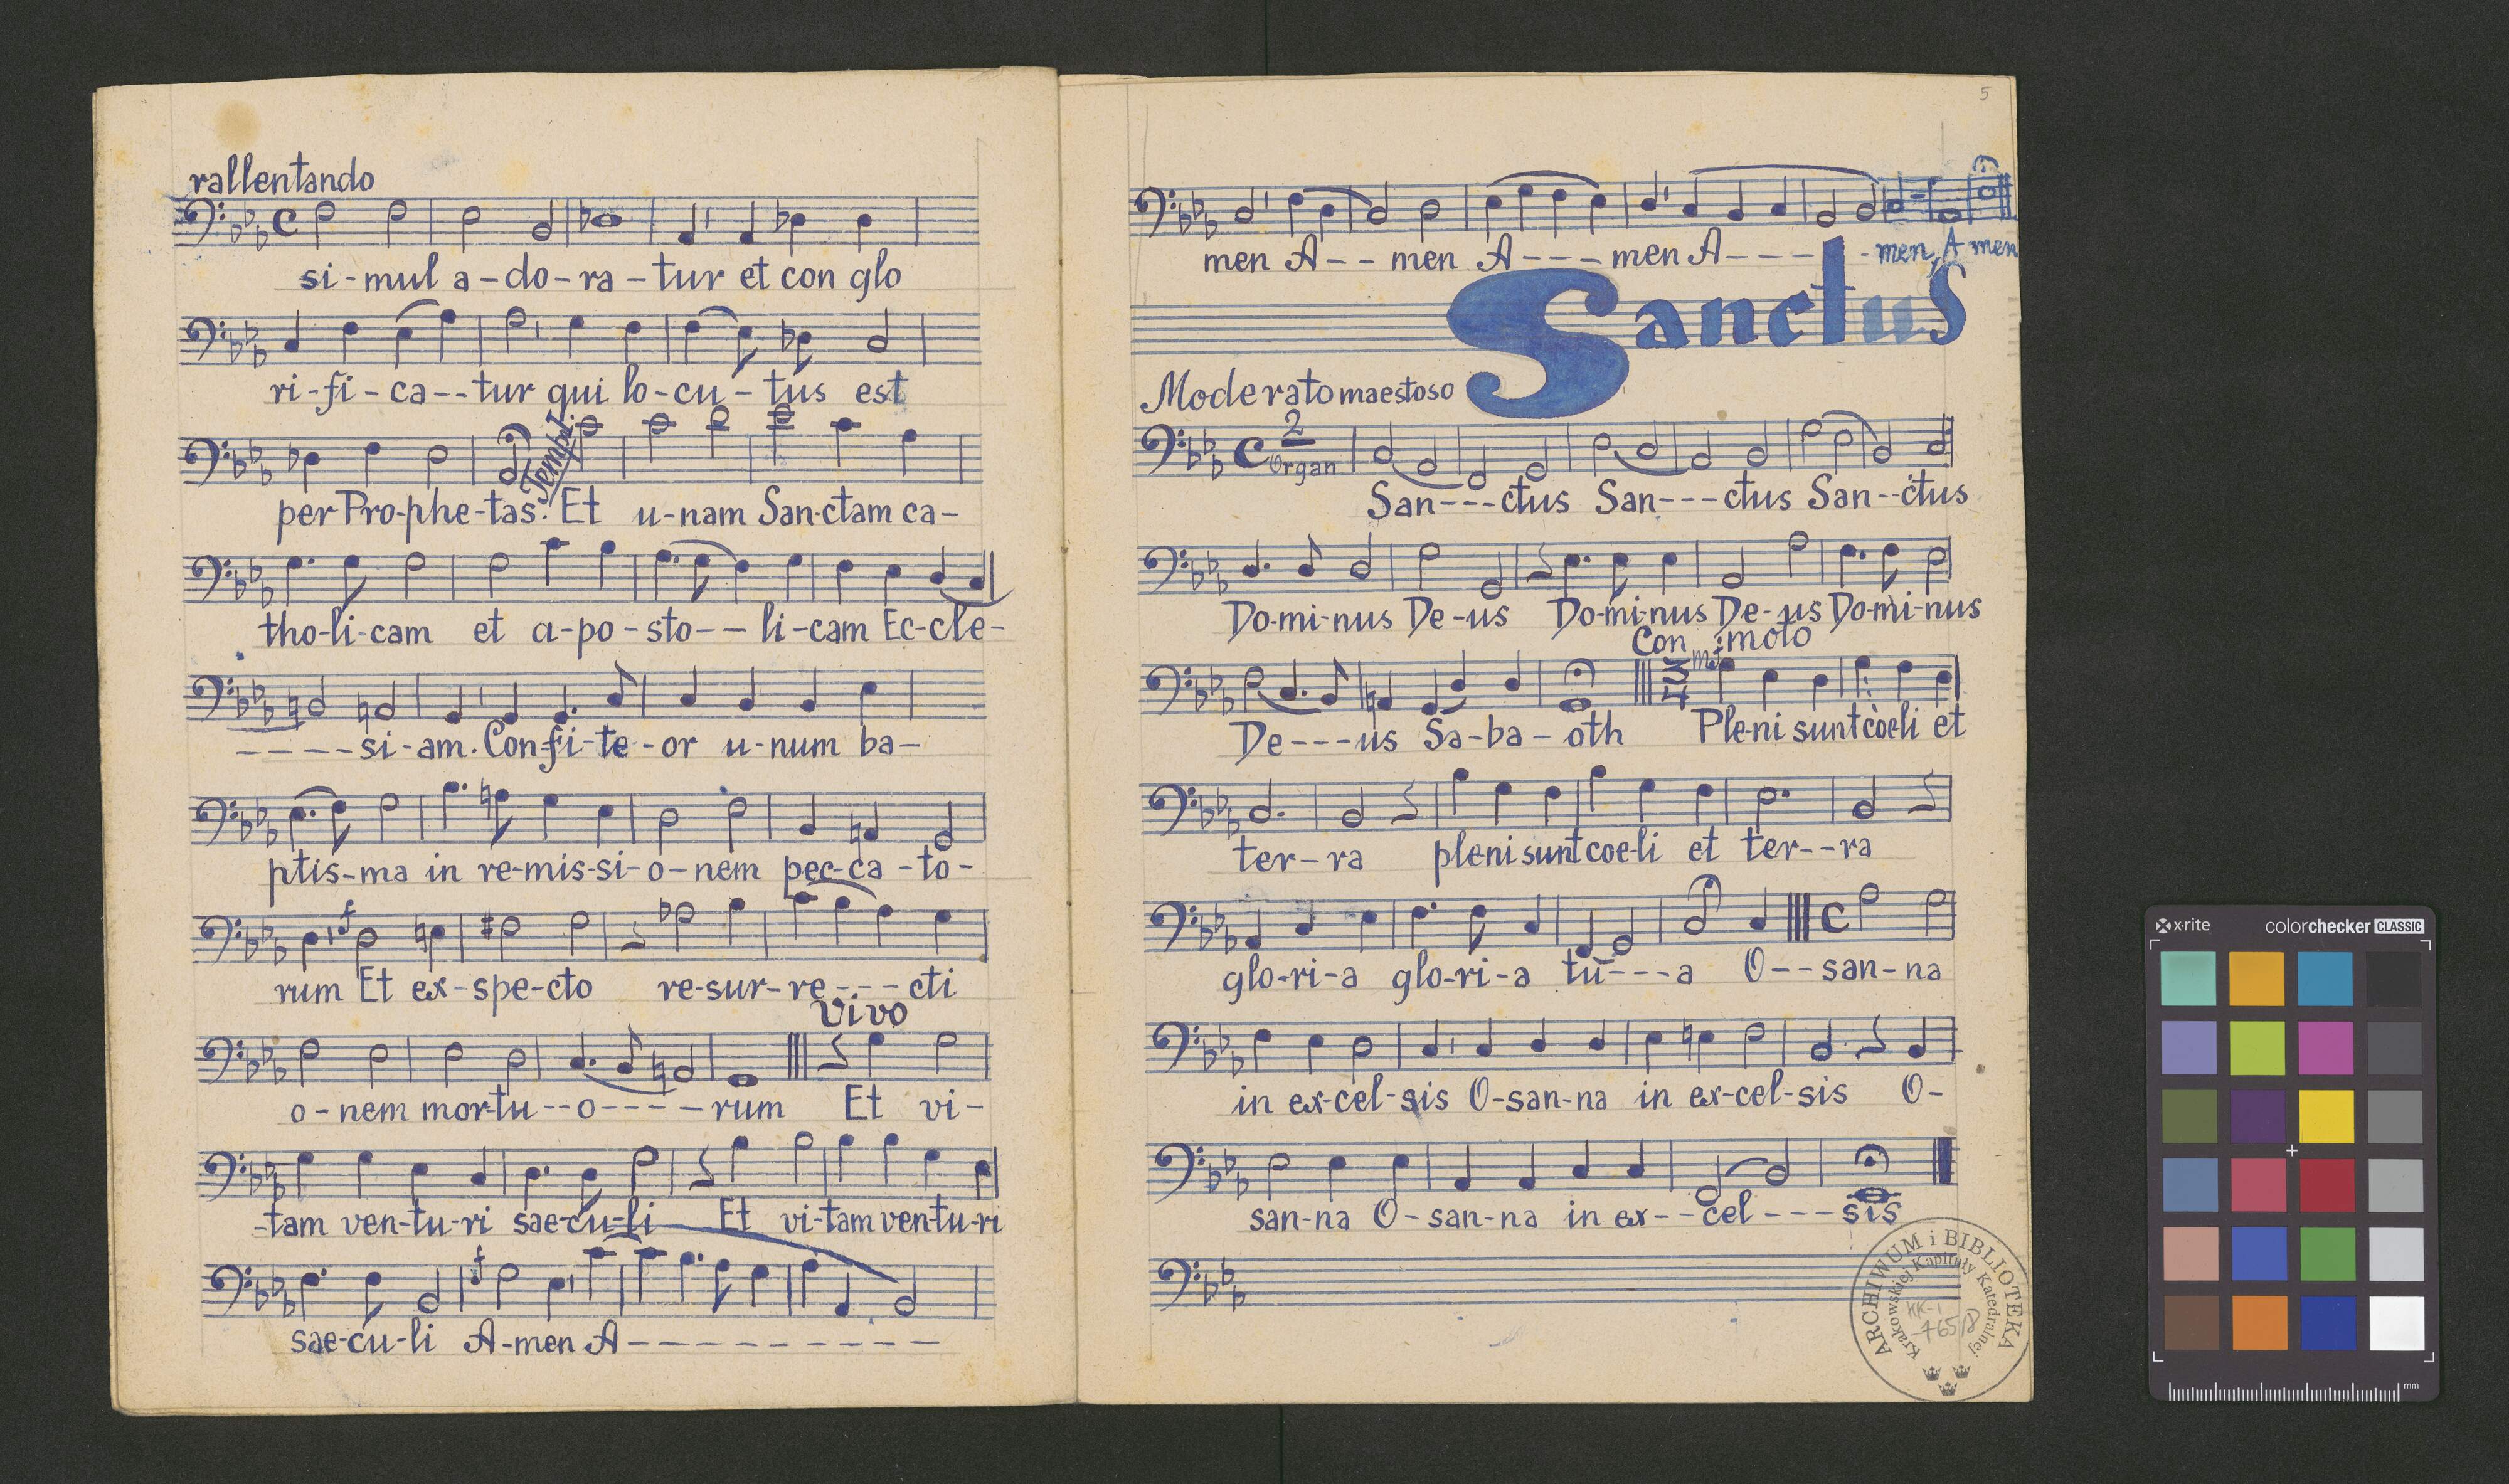 rallentando
si-mul a-do-ra-tur et con glo
ri-fi-ca--tur qui lo-cu-tus est
Tempo I.
per Pro-phe-tas. Et u-nam San-ctam ca-
tho-li-cam et a-po-sto--li-cam Ec-cle-
----si-am. Con-fi-te-or u-num ba-
ptis-ma in re-mis-si-o-nem pec-ca-to-
f
rum Et ex-spe-cto re-sur-re---cti
Vivo
o-nem mor-tu--o----rum Et vi-
-tam ven-tu-ri sae-cu-li Et vi-tam ven-tu-ri
f
sae-cu-li A-men A----------
5
men A--men A---men A-----men, A men
Sanctus
Moderato maestoso
2
Organ
San---ctus San---ctus San--ctus
Do-mi-nus De-us Do-mi-nus De-us Do-mi-nus
Con moto
mf
3 4
De---us Sa-ba-oth Ple-ni sunt coe-li et
ter-ra pleni sunt coe-li et ter--ra
glo-ri-a glo-ri-a tu---a O--san-na
in ex-cel-sis O-san-na in ex-cel-sis O-
san-na O-san-na in ex--cel---sis
ARCHIWUM i BIBLIOTEKA
Krakowskiej Kapituły Katedralnej
KK-I
x-rite colorchecker CLASSIC
mm